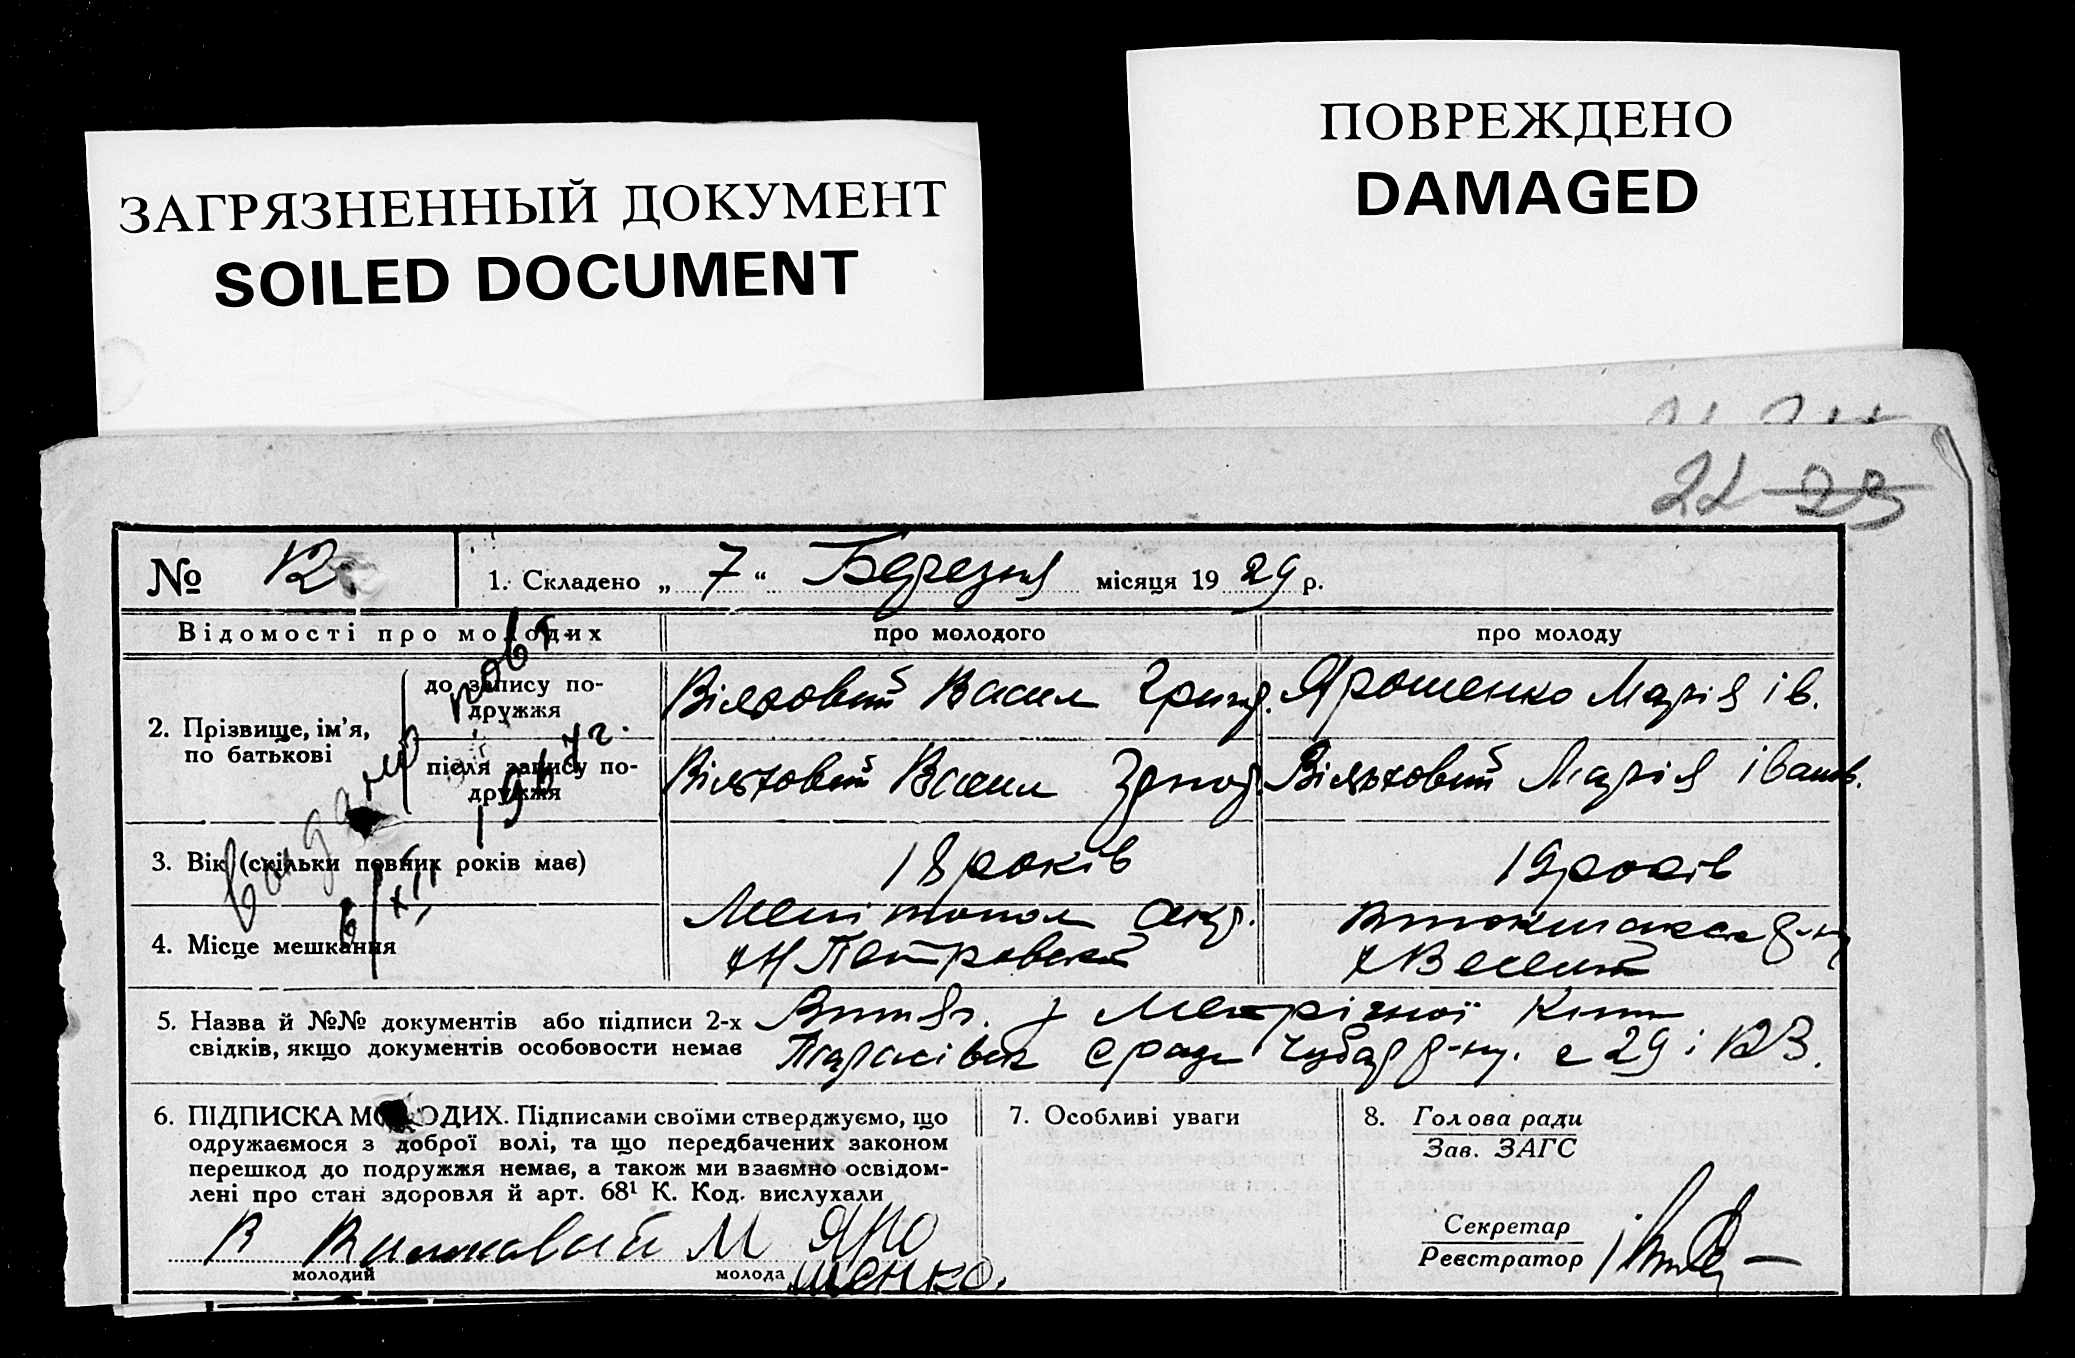 ЗАГРЯЗНЕННЫЙ ДОКУМЕНТ
SOILED DOCUMENT
ПОВРЕЖДЕНО
DAMAGED
22 23
№ 12
1. Складено „ 7 “ Березня місяця 19 29 р.
Відомості про молодих
про молодого
про молоду
2. Прізвище, ім’я, по батькові
до запису по-
дружжя
Вільховий Васил Григ. Ярошенко Марія ів.
після запису по-
дружжя
Вільховий Васил Григ. Вільховий Марія іванов.
3. Вік (скільки повних років має)
18 років
19 років
4. Місце мешкання
Мелітопол окр.
Петровский
р-ну
х Веселий
видано повт.
6/XII 1947 г.
5. Назва й №№ документів або підписи 2-х
свідків, якщо документів особовости немає
Витяг. з Метрічної Книги
Чубар р-ну. 29 і 123.
6. ПІДПИСКА МОЛОДИХ. Підписами своїми стверджуємо, що
одружаємося з доброї волі, та що передбачених законом
перешкод до подружжя немає, а також ми взаємно освідом-
лені про стан здоровля й арт. 68¹ К. Код. вислухали
В М ЯРО
молодий
молода
шенко.
7. Особливі уваги
8. Голова ради
Зав. ЗАГС
Секретар
Реєстратор